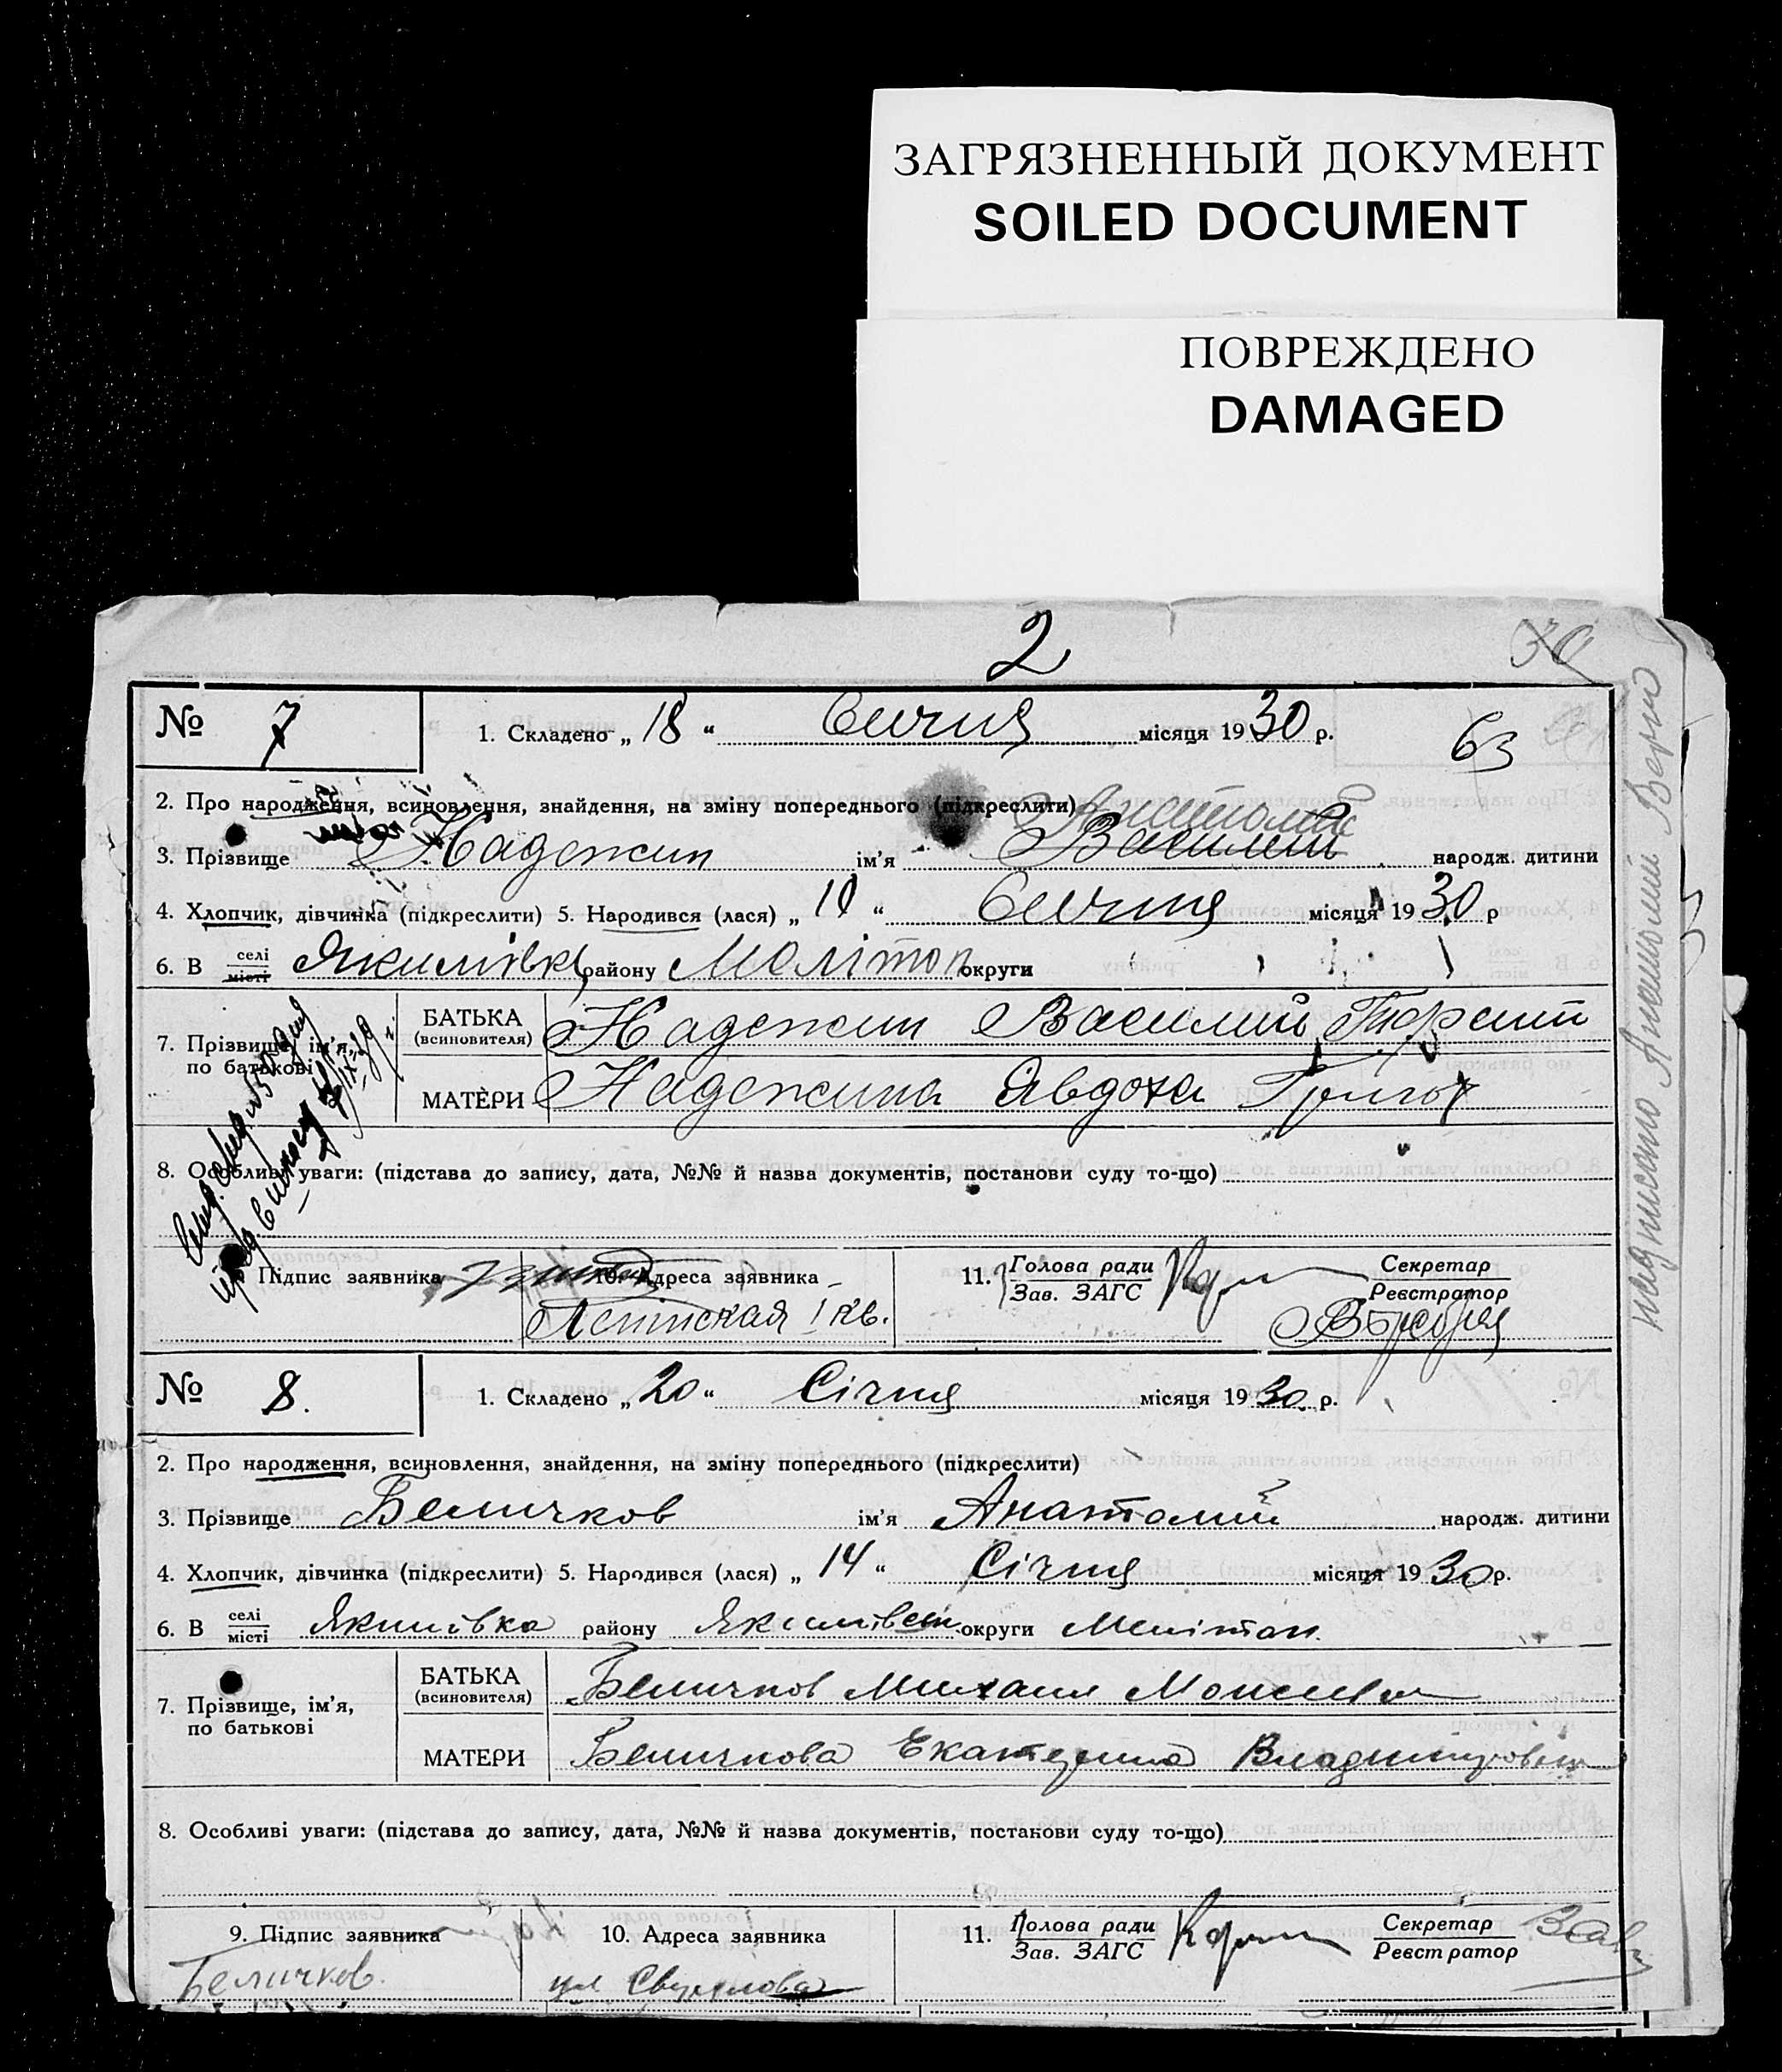 ЗАГРЯЗНЕННЫЙ ДОКУМЕНТ
SOILED DOCUMENT
ПОВРЕЖДЕНО
DAMAGED
2
30
№ 7 1. Складено „ 18 “ Сичня місяця 19 30 р. 63
2. Про народження, всиновлення, знайдення, на зміну попереднього (підкреслити) Анатолий
3. Прізвище Надежин ім'я Василий народж. дитини
4. Хлопчик, дівчинка (підкреслити) 5. Народився (лася) „ 10 “ Сичня місяця 19 30 р
6. В селі місті Якимівка району Мелітоп округи
7. Прізвище, ім'я, по батькові
БАТЬКА (всиновителя) Надежин Василий
МАТЕРИ Надежина Явдоха Григор
8. Особливі уваги: (підстава до запису, дата, №№ й назва документів, постанови суду то-що)
Підпис заявника 10. Адреса заявника 11. Голова ради Зав. ЗАГС Секретар Реєстратор
Ленінская I кв.
надписано Анатолий Верно
№ 8. 1. Складено „ 20 “ Січня місяця 19 30 р.
2. Про народження, всиновлення, знайдення, на зміну попереднього (підкреслити)
3. Прізвище Беличков ім'я Анатолий народж. дитини
4. Хлопчик, дівчинка (підкреслити) 5. Народився (лася) „ 14 “ Січня місяця 19 30 р.
6. В селі місті Якимівка району Якимівськ. округи Мелітоп.
7. Прізвище, ім'я, по батькові
БАТЬКА (всиновителя) Беличков Михаил Моисеевич
МАТЕРИ Беличкова Екатерина Владимировна
8. Особливі уваги: (підстава до запису, дата, №№ й назва документів, постанови суду то-що)
9. Підпис заявника 10. Адреса заявника 11. Голова ради Зав. ЗАГС Секретар Реєстратор
Беличков. ул Свердлова